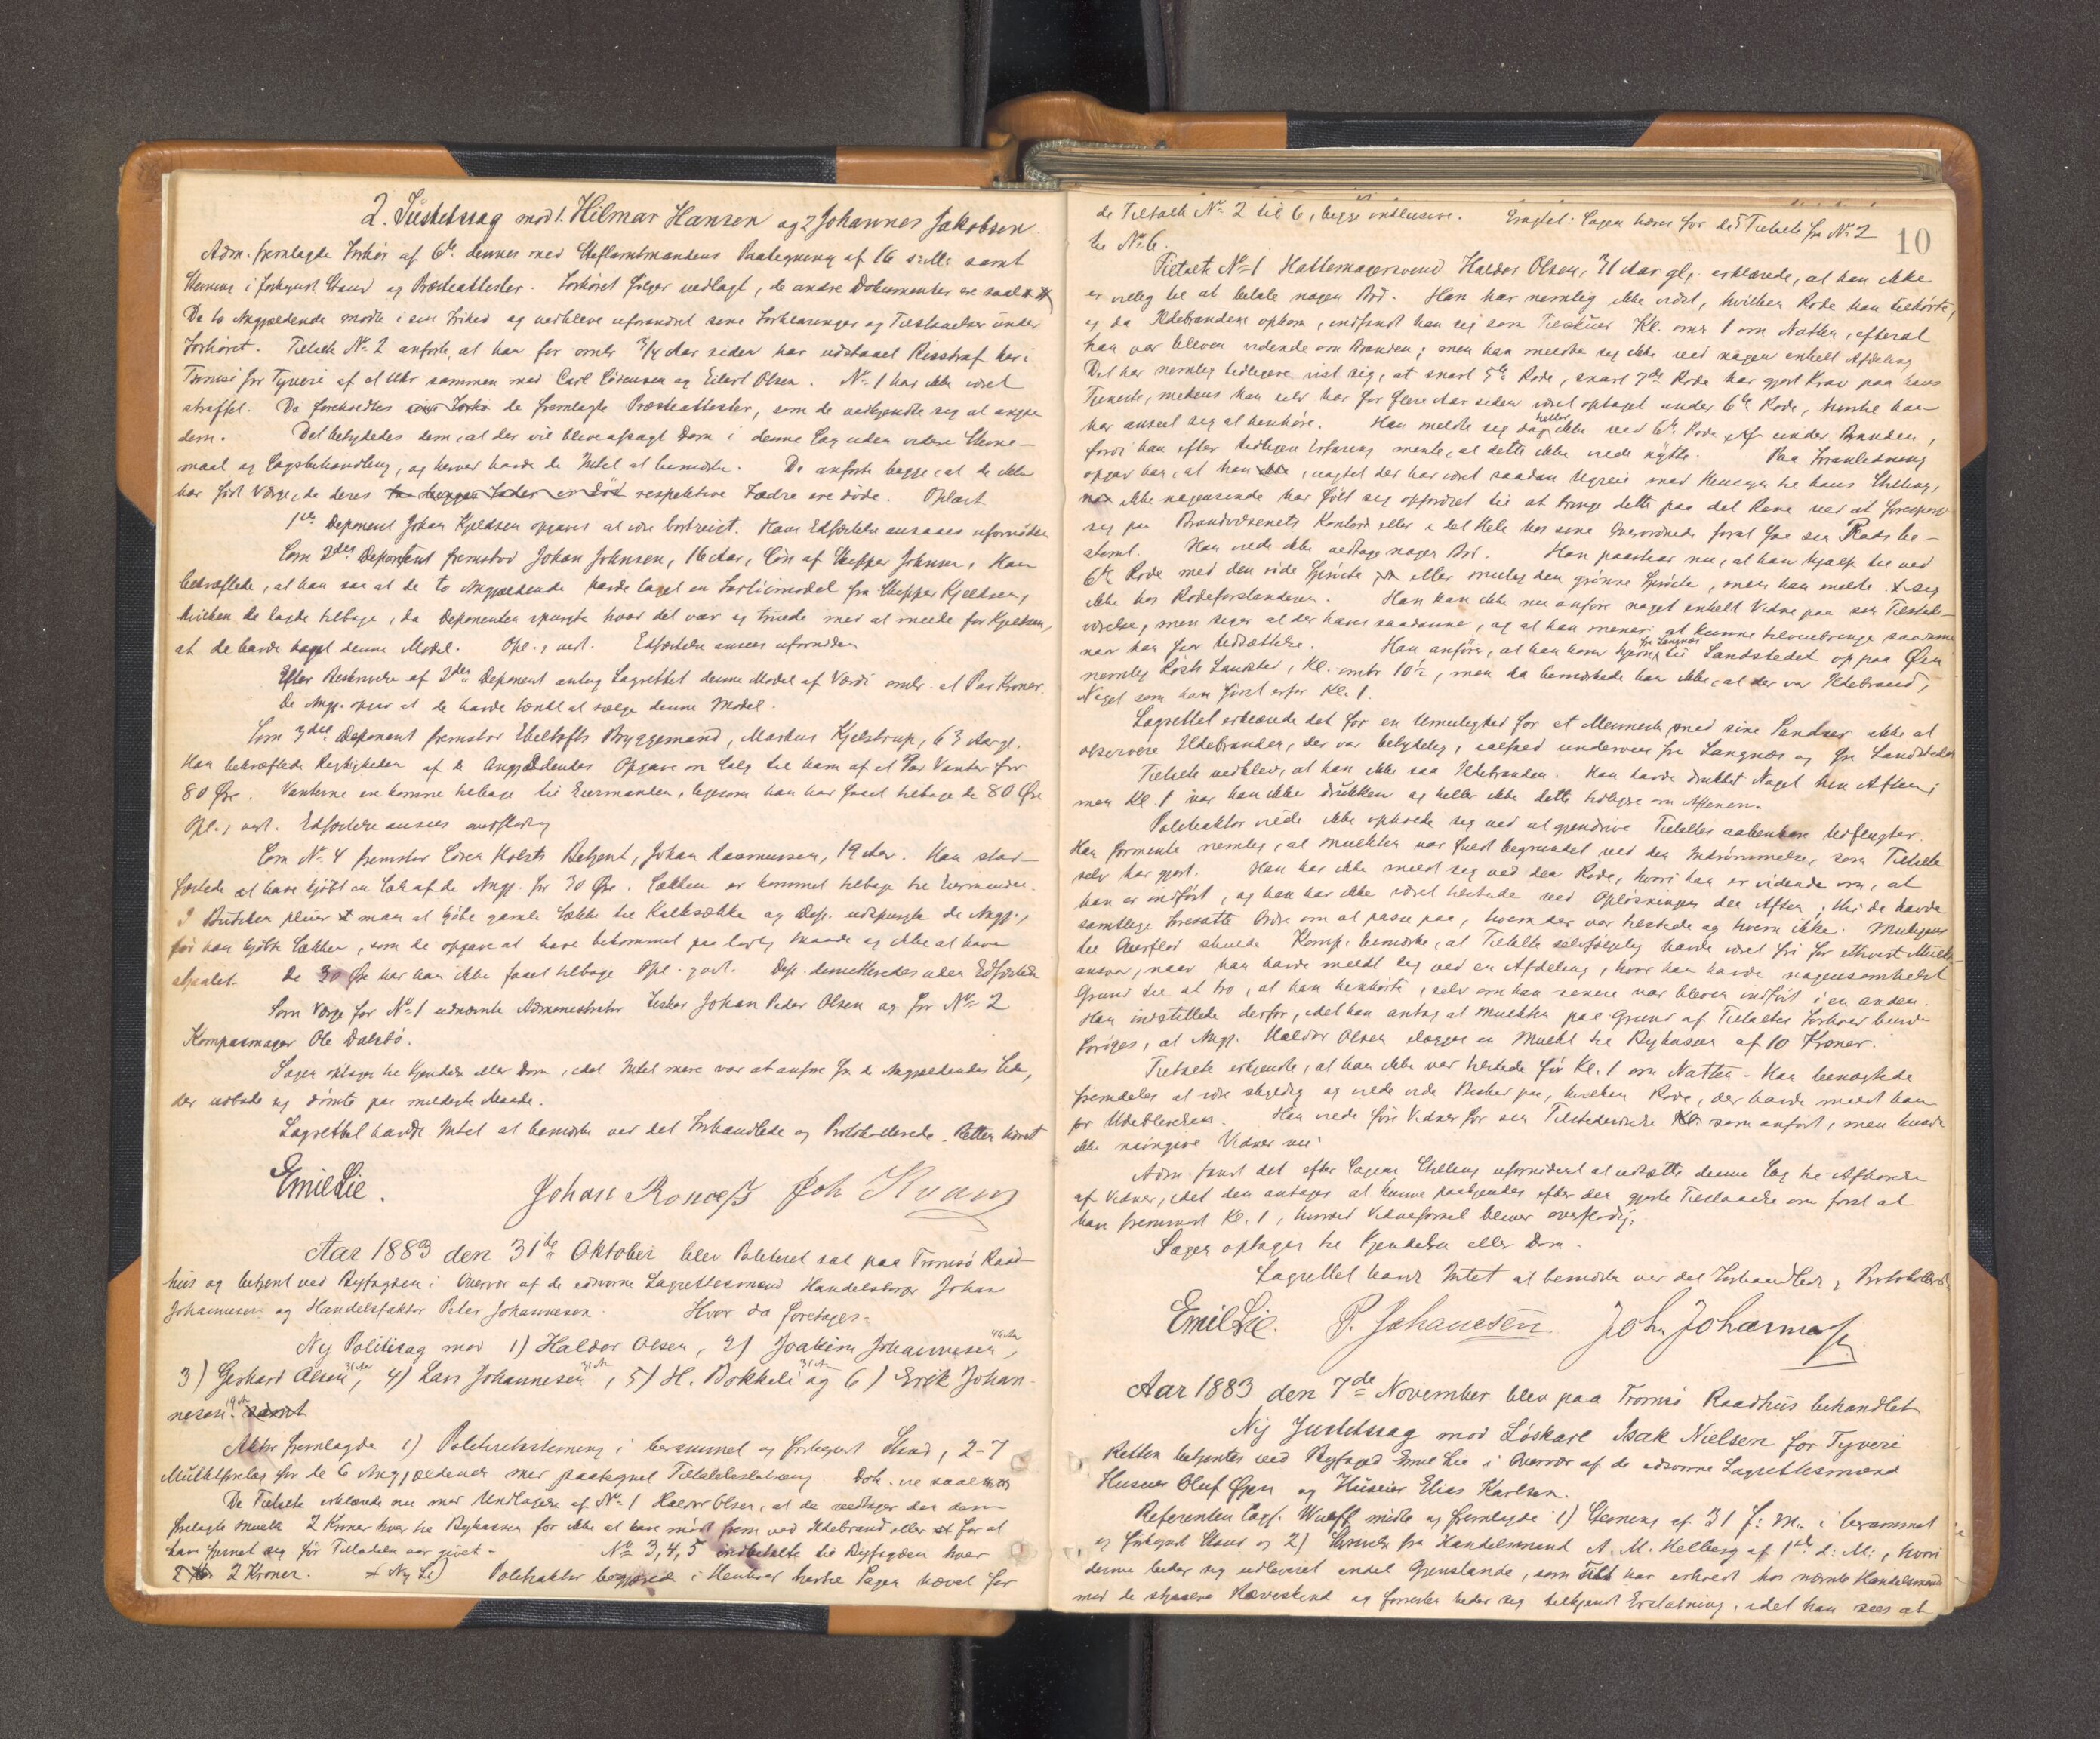 2. Justitssag mod 1. Hilmar Hansen og 2 Johannes Jakobsen.
Adm. fremlagde Forhør af 6te dennes med Stiftamtmandens Paategning af 16 s: M: samt
Stevning i forkyndt Stand og Præsteattester. Forhøret følger vedlagt, de andre Dokumenter ere saal
De to Angjældende mødte i sin Frihed og vedbleve uforandret sine Forklaringer og Tilstaaelser under
Forhøret. Tiltalte No 2 anførte, at han for omtr 3/4 Aar siden har udstaaet Risstraf her i
Tromsö for Tyveri af et Uhr sammen med Carl Sörensen og Eilert Olsen. No 1 har ikke været
straffet. De foreholdtes de fremlagte Præsteattester, som de vedkjendte sig at angaa
dem. Det betydedes dem, at der vil blive afsagt Dom i denne Sag uden videre Stevne-
maal og Sagsbehandling, og herved havde de Intet at bemærke. De anførte begge, at de ikke
har født Værge, da deres respektive Fædre ere døde. Oplæst
1ste Deponent Johan Kjeldsen opgaves at være bortreist. Hans Edfæstelse ansaaes ufornöden
Som 2den Deponent fremstod Johan Johnsen, 16 Aar, Sön af Skipper Johnsen. Han
bekræftede, at han saa at de to Angjældende havde taget en Fartöimodel fra Skipper Kjeldsen,
hvilken de lagde tilbage, da Deponenten spurgte hvad det var og truede med at melde for Kjeldsen,
at de havde taget denne Model. Opl., vedt. Edfæstelse ansees ufornöden
Efter Beskrivelse af 2den Deponent antog Lagrettet denne Model af Værdi omtr. et Par Kroner.
De Angj. opgav at de havde tænkt at sælge denne Model.
Som 3die Deponent fremstod Ebeltofts Bryggemand, Markus Kjelstrup, 63 Aar gl.
Han bekræftede Rigtigheden af de Angjældendes Opgave om Salg til ham af et Par Vanter for
80 Øre. Vanterne ere komne tilbage til Eiermanden, ligesom han har faaet tilbage de 80 Øre
Opl., vedt. Edfæstelse ansees overflödig
Som No 4 fremstod Sören Holsts Betjent, Johan Rasmussen, 19 Aar. Han stad-
fæstede at have kjöbt en Sæk af de Angj. for 30 Øre. Sækken er kommet tilbage til Eiermanden.
I Butiken pleier man at kjöbe gamle Sække til Kulsække og Dep. udspurgte de Angj.,
för han kjöbte Sækken, som de opgave at have bekommet paa lovlig Maade og ikke at have
stjaalet. De 30 Øre har han ikke faaet tilbage Opl. vedt. Dep. dimitteredes uden Edfæstelse
Som Værge for No 1 udnævnte Administrator Fisker Johan Peder Olsen og for No 2
Kompasmager Ole Dalsbö.
Sagen optages til Kjendelse eller Dom, idet Intet mere var at anføre fra de Angjældendes Side,
der udbade sig dömte paa mildeste Maade.
Lagrettet havde Intet at bemærke ved det Forhandlede og Protokollerede. Retten hævet
Emil Lie. Johan Roness Joh Kvam
Aar 1883 den 31te Oktober blev Politiret sat paa Tromsö Raad-
hus og betjent ved Byfogden i Overvær af de edsvorne Lagrettesmænd Handelsborger Johan
Johannesen og Handelsfaktor Peter Johannesen. Hvor da foretoges:
Ny Politisag mod 1) Haldor Olsen, 2) Joakim Johannesen, 46 Aar
3) Gerhard Olsen 31 Aar, 4) Lars Johannesen 31 Aar, 5) H. Bokkeli 31 Aar og 6) Erik Johan-
nesen. 19 Aar samt
Aktor fremlagde 1) Politiretsstevning i berammet og forkyndt Stand, 2-7
Mulktforelæg for de 6 Angjældende med paategnet Tiltalebeslutning. Dok. ere saal
De Tiltalte erklærede nu med Undtagelse af No 1 Haldor Olsen, at de vedtager den dem
forelagte Mulkt 2 Kroner hver til Bykassen for ikke at have mödt frem ved Ildebrand eller for at
have fjernet sig för Tilladelse var givet. No 3, 4, 5 indbetalte til Byfogden hver
2 Kroner. Politiaktor begjærede i Henhold hertil Sagen hævet for
de Tiltalte No 2 til 6, begge inklusive. Eragtet: Sagen hæves for de 5 Tiltalte fra No 2
til No 6.
10
Tiltalte No 1 Hattemagersvend Haldor Olsen, 31 Aar gl. erklærede, at han ikke
er villig til at betale nogen Bod. Han har nemlig ikke vidst, hvilken Rode han tilhörte,
og da Ildebranden opkom, indfandt han sig som Tilskuer Kl. omtr 1 om Natten, efterat
han var bleven vidende om Branden; men han meldte sig ikke ved nogen enkelt Afdeling
Det har nemlig tidligere vist sig, at snart 5te Rode, snart 7de Rode har gjort Krav paa hans
Tjeneste, medens han selv har for flere Aar siden været optaget under 6te Rode, hvortil han
har anseet sig at henhöre. Han meldte sig dog heller ikke ved 6te Rode under Branden,
fordi han efter tidligere Erfaring mente, at dette ikke vilde nytte. Paa Foranledning
opgav han, at han, uagtet der har været saadan Uregel med Hensyn til hans Stilling,
ikke nogensinde har fölt sig opfordret til at bringe dette paa det Rene ved at forespörge
sig paa Brandvæsenets Kontor eller i det Hele hos sine Overordnede for at faa sin Rode be-
stemt. Han vilde ikke vedtage nogen Bod. Han paastaar nu, at han hjalp til ved
6te Rode med den röde Spröite eller muligt den grönne Spröite, men han meldte sig
ikke hos Rodeforstanderen. Han kan ikke nu anföre noget enkelt Vidne paa sin Tilstede-
værelse, men siger at der haves saadanne, og at han mener at kunne tilveiebringe saadanne
naar han faar Udsættelse. Han anförer, at han kom hjem fra Langnæs til Landstedet op paa Øen
nemlig Kösts Landsted, Kl. omtr 10½, men da bemærkede han ikke, at der var Ildebrand,
Noget som han först erfor Kl. 1.
Lagrettet erklærede det for en Umulighed for et Menneske med sine Sandser ikke at
observere Ildebranden, der var betydelig, ialfald underveis fra Langnæs og fra Landstedet
Tiltalte vedblev, at han ikke saa Ildebranden. Han havde drukket Noget hin Aften;
men Kl. 1 var han ikke drukken og heller ikke dette tidligere om Aftenen.
Politiaktor vilde ikke opholde sig ved at gjendrive Tiltaltes aabenbare Udflugter.
Han formente nemlig, at Mulkten var fuldt begrundet ved den Indrömmelse, som Tiltalte
selv har gjort. Han har ikke meldt sig ved den Rode, hvori han er vidende om, at
han er indfört, og han har ikke været tilstede ved Oplösningen den Aften, thi de havde
samtlige Foresatte Ordre om at passe paa, hvem der var tilstede og hvem ikke. Muligens
til Overflod skulde Komp. bemærke, at Tiltalte selvfölgelig havde været fri for ethvert Mulkt-
ansvar, naar han havde meldt sig ved en Afdeling, hvor han havde nogensomhelst
Grund til at tro, at han henhörte, selv om han senere var bleven indfört i en anden.
Han indstillede derfor, idet han antog at Mulkten paa Grund af Tiltaltes Forhold burde
foröges, at Angj. Haldor Olsen ilægges en Mulkt til Bykassen af 10 Kroner.
Tiltalte erkjendte, at han ikke var tilstede för Kl. 1 om Natten. Han benægtede
fremdeles at være skyldig og vilde vide Besked paa, hvilken Rode, der havde meldt ham
for Udeblivelsen. Han vilde före Vidner for sin Tilstedeværelse som anfört, men kunde
ikke navngive Vidner nu.
Adm. fandt det efter Sagens Stilling ufornödent at udsætte denne Sag til Afhörelse
af Vidner, idet den antages at kunne paakjendes efter den gjorte Tilstaaelse om först at
have fremmödt Kl. 1, hvorved Vidneförsel bliver overflödig.
Sagen optages til Kjendelse eller Dom.
Lagrettet havde Intet at bemærke ved det Forhandlede, Protokollerede
Emil Lie. P. Johanesen Joh. Johannesen
Aar 1883 den 7de November blev paa Tromsö Raadhus behandlet
Ny Justitssag mod Löskarl Isak Nielsen for Tyveri
Retten betjentes ved Byfoged Emil Lie i Overvær af de edsvorne Lagrettesmænd
Huseier Oluf Øien og Huseier Elias Karlsen.
Referenten Sagf. Wulff mödte og fremlagde 1) Stevning af 31 f: M: i berammet
og forkyndt Stand og 2) Skrivelse fra Handelsmand A. M. Helberg af 1ste d: M:, hvori
denne beder sig udleveret endel Gjenstande, som Tilt. har erholdt hos nævnte Handelsmand
mod de stjaalne Ræveskind og forresten beder sig tilkjendt Erstatning, idet han sees at